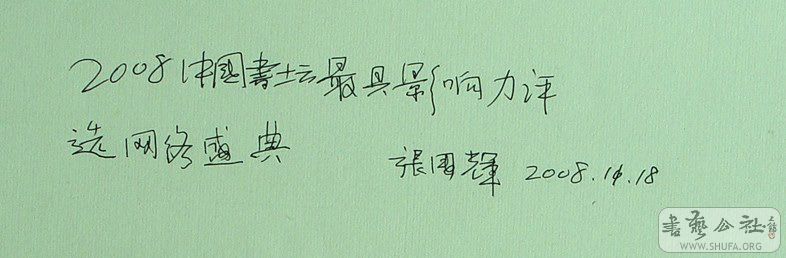 2008中國書坛最具影响力评
选网络盛典 張国輝 2008.10.18
書藝公社
WWW.SHUFA.ORG